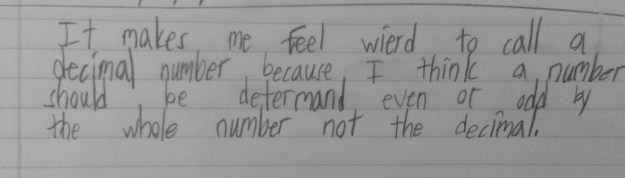 It makes me feel wierd to call a
decimal number because I think a number
should be determand even or odd by
the whole number not the decimal.